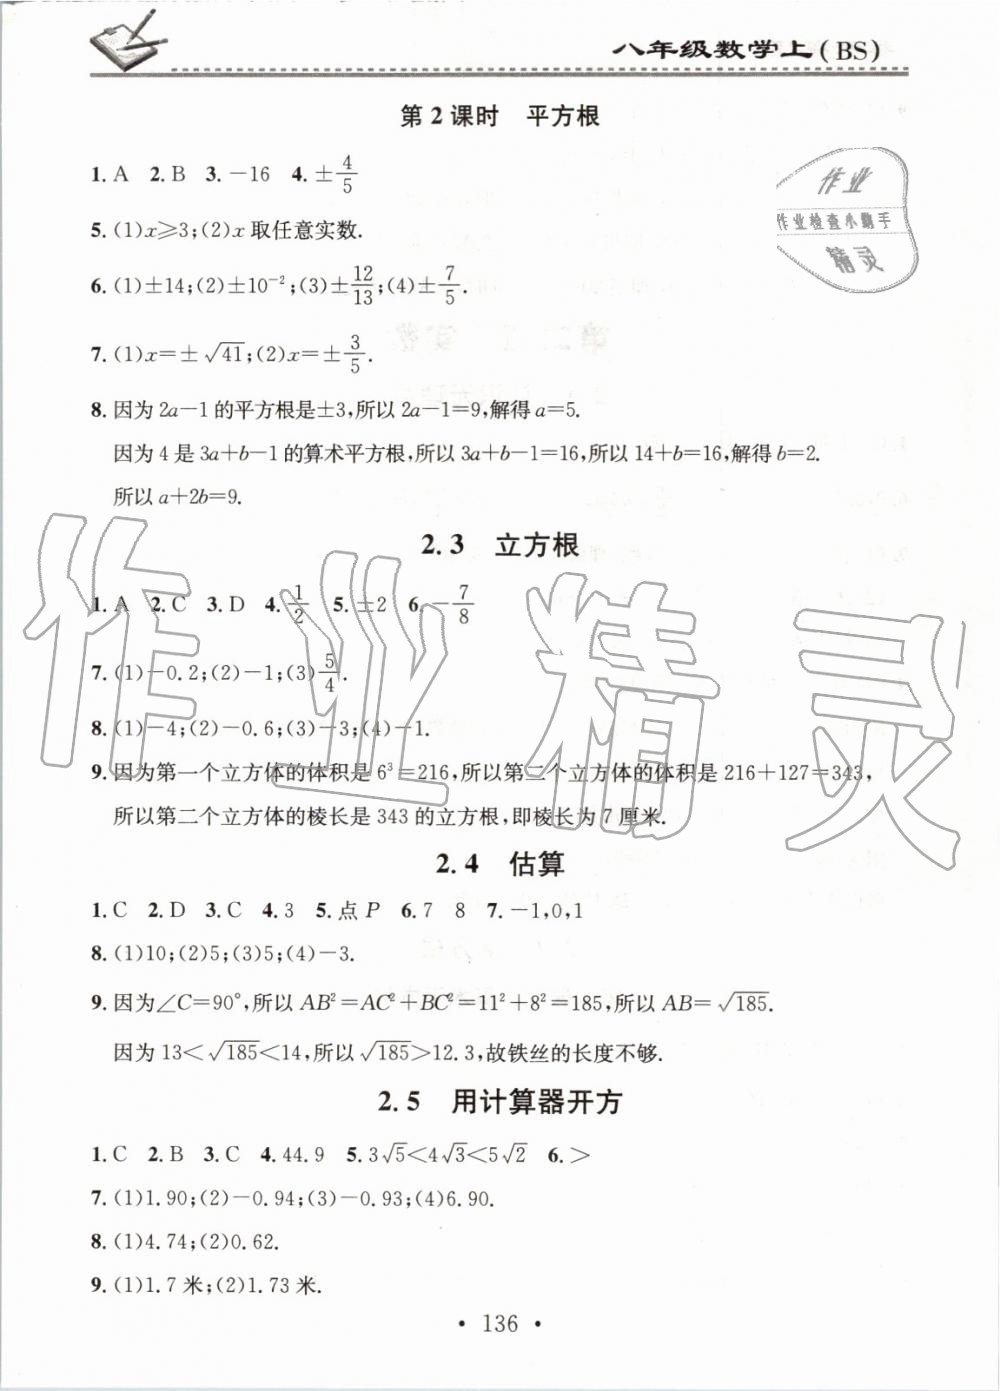 八年级数学上(BS)
第2课时 平方根
1. A 2. B 3. －16 4. ±4/5
5. (1)x≥3;(2)x 取任意实数.
6. (1)±14;(2)±10⁻²;(3)±12/13;(4)±7/5.
7. (1)x＝±√41;(2)x＝±3/5.
8. 因为 2a－1 的平方根是±3,所以 2a－1＝9,解得 a＝5.
因为 4 是 3a＋b－1 的算术平方根,所以 3a＋b－1＝16,所以 14＋b＝16,解得 b＝2.
所以 a＋2b＝9.
2.3 立方根
1. A 2. C 3. D 4. 1/2 5. ±2 6. －7/8
7. (1)－0.2;(2)－1;(3)5/4.
8. (1)－4;(2)－0.6;(3)－3;(4)－1.
9. 因为第一个立方体的体积是 6³＝216,所以第二个立方体的体积是 216＋127＝343,
所以第二个立方体的棱长是 343 的立方根,即棱长为 7 厘米.
2.4 估算
1. C 2. D 3. C 4. 3 5. 点 P 6. 7 8 7. －1,0,1
8. (1)10;(2)5;(3)5;(4)－3.
9. 因为∠C＝90°,所以 AB²＝AC²＋BC²＝11²＋8²＝185,所以 AB＝√185.
因为 13＜√185＜14,所以√185＞12.3,故铁丝的长度不够.
2.5 用计算器开方
1. C 2. B 3. C 4. 44.9 5. 3√5＜4√3＜5√2 6. ＞
7. (1)1.90;(2)－0.94;(3)－0.93;(4)6.90.
8. (1)4.74;(2)0.62.
9. (1)1.7 米;(2)1.73 米.
· 136 ·
作业
作业检查小助手
精灵
作业精灵